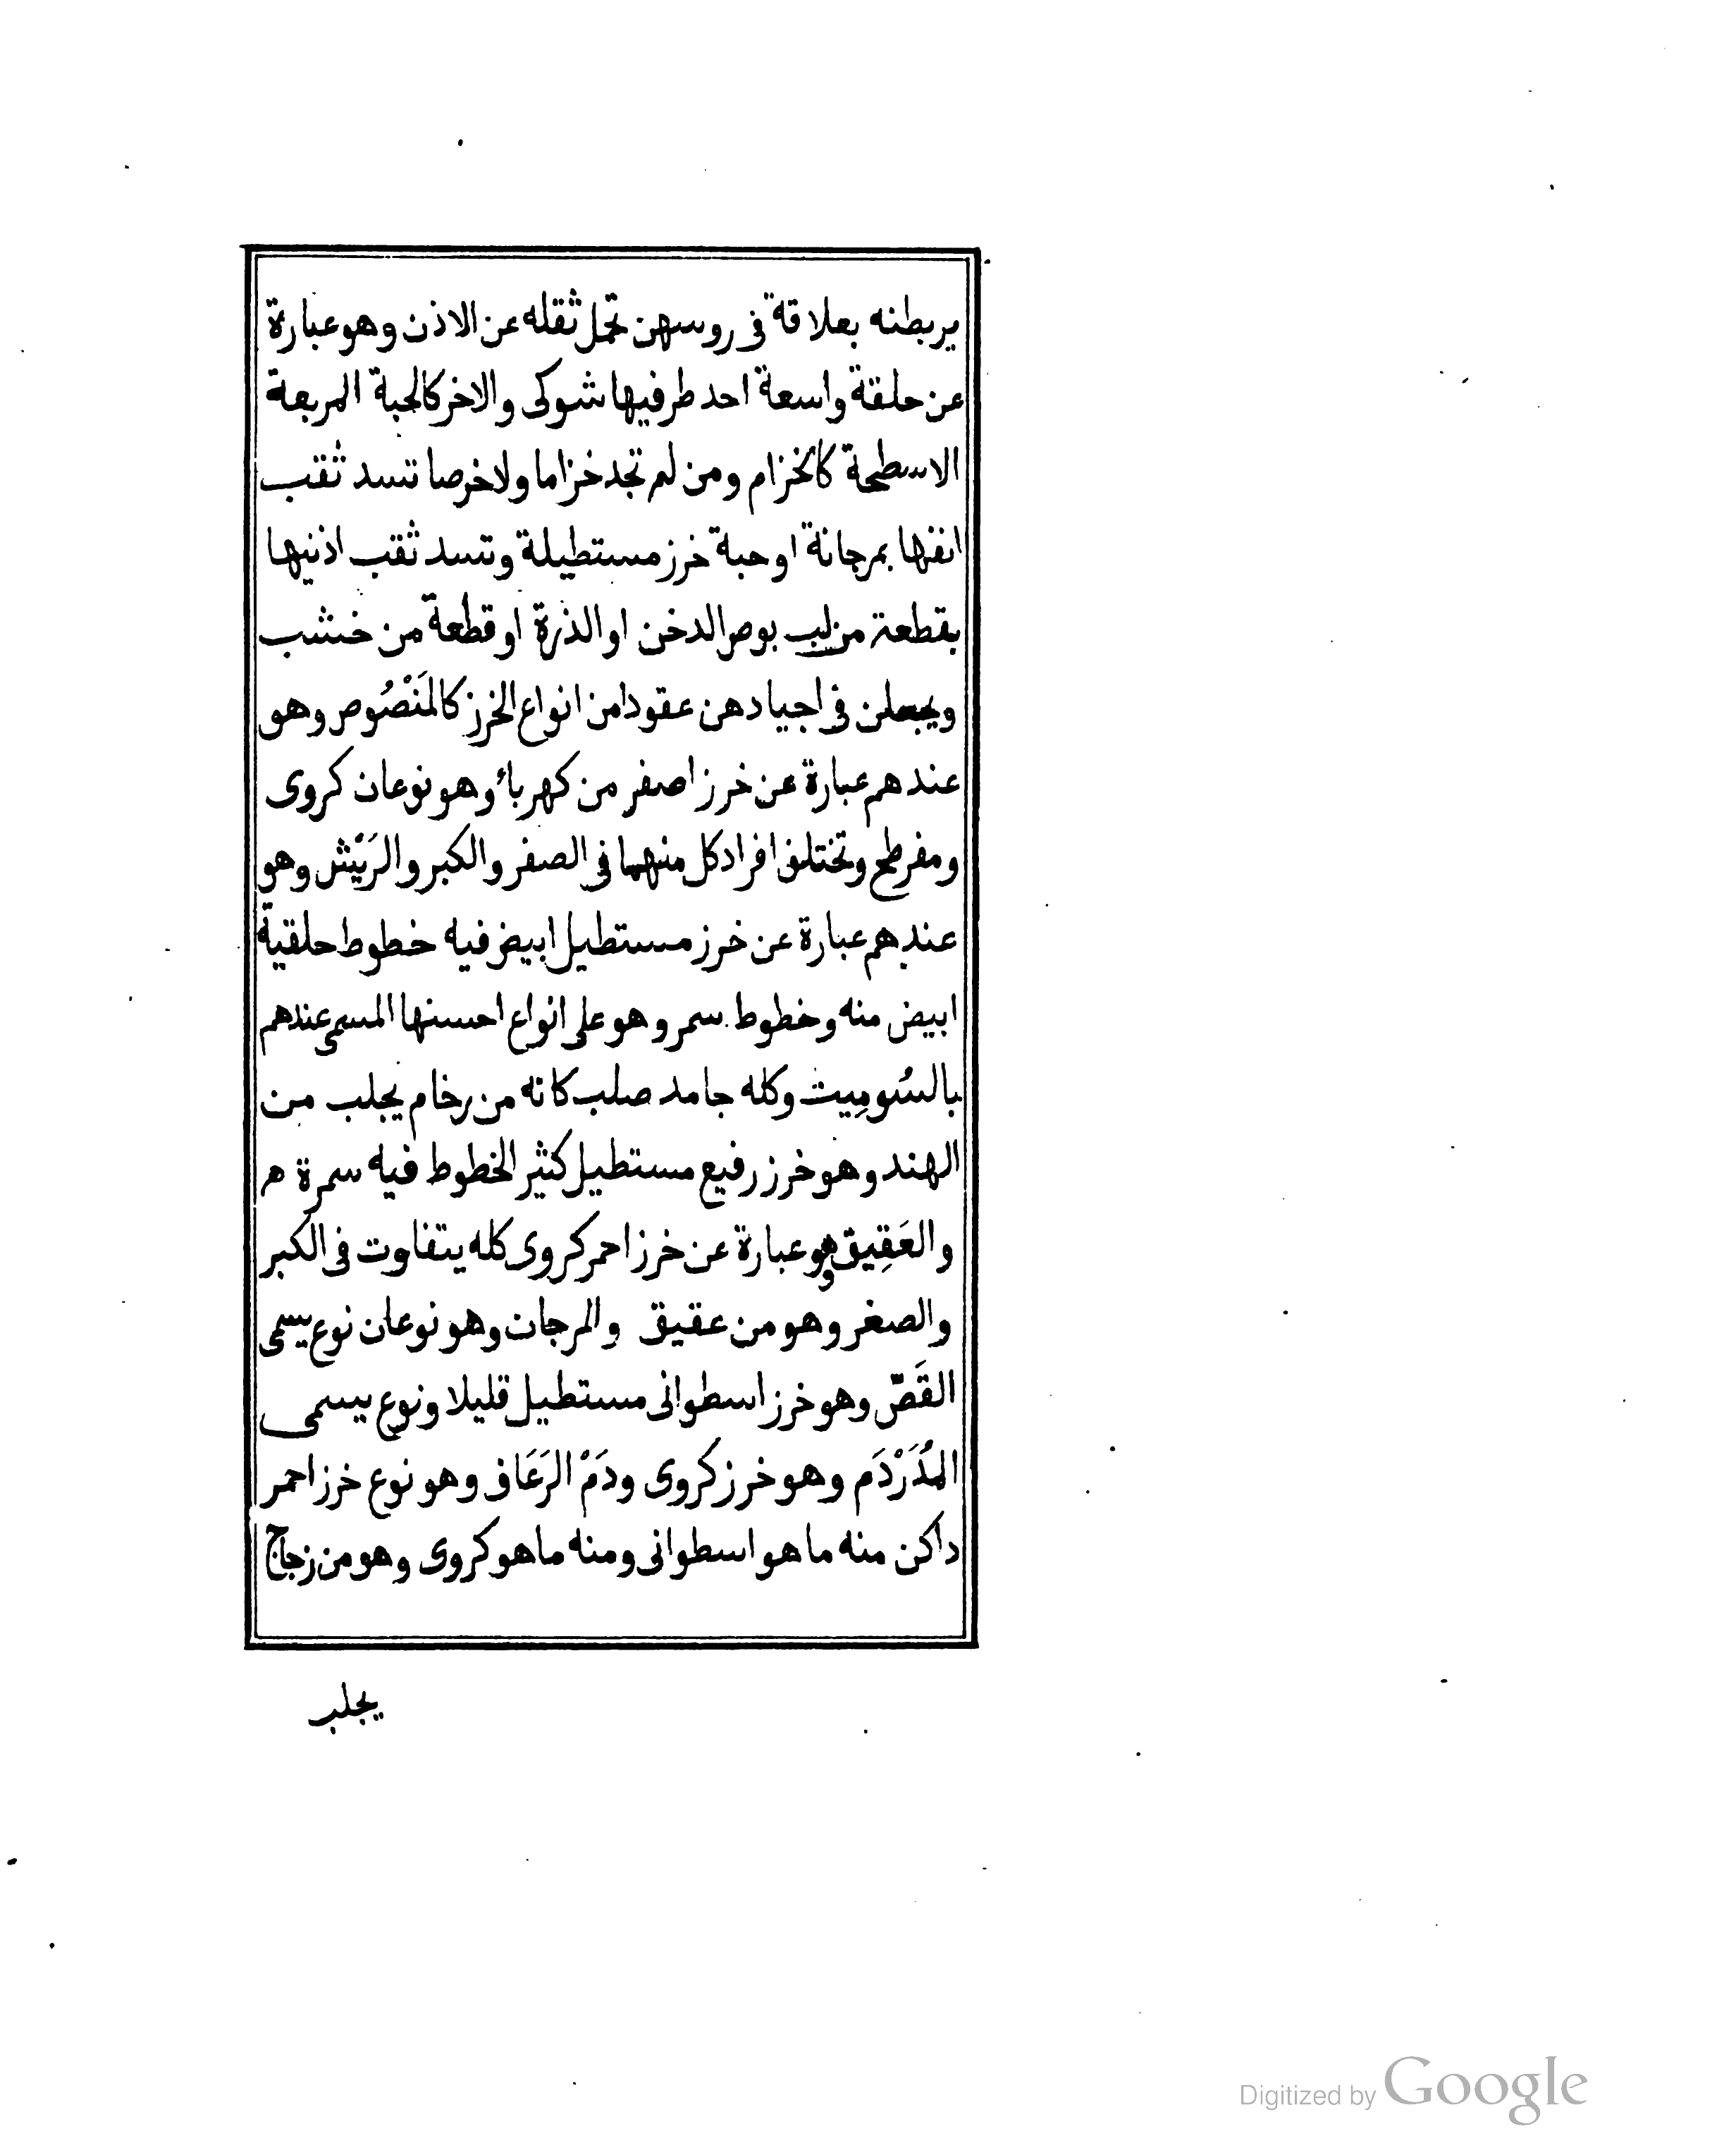 يربطنه بعلاقة فى روسهن تحمل ثقله عن الاذن وهو عبارة
عن حلقة واسعة احد طرفيها شوكى والاخر كالحبة المربعة
الاسطحة كالخزام ومن لم تجد خزاما ولا خرصا تسد ثقب
انفها بمرجانة او حبة خرز مستطيلة وتسد ثقب اذنيها
بقطعة من لب بوص الدخن او الذرة او قطعة من خشب
ويجعلن فى اجيادهن عقودا من انواع الخرز كالمَنْصُوص وهو
عندهم عبارة عن خرز اصفر من كهرباء وهو نوعان كروى
ومفرطح وتختلف افراد كل منهما فى الصفر والكبر والرَيْش وهو
عندهم عبارة عن خرز مستطيل ابيض فيه خطوط حلقية
ابيض منه وخطوط سمر وهو على انواع احسنها المسمى عندهم
بالسُومِيت وكله جامد صلب كانه من رخام يجلب من
الهند وهو خرز رفيع مستطيل كثير الخطوط فيه سمرة م
والعَقِيق وهو عبارة عن خرز احمر كروى كله يتفاوت فى الكبر
والصغر وهو من عقيق والمرجان وهو نوعان نوع يسمى
القَصّ وهو خرز اسطوانى مستطيل قليلا ونوع يسمى
المُدَرْدَم وهو خرز كروى ودَمْ الرَعَاف وهو نوع خرز احمر
داكن منه ما هو اسطوانى ومنه ما هو كروى وهو من زجاج
يجلب
Digitized by Google